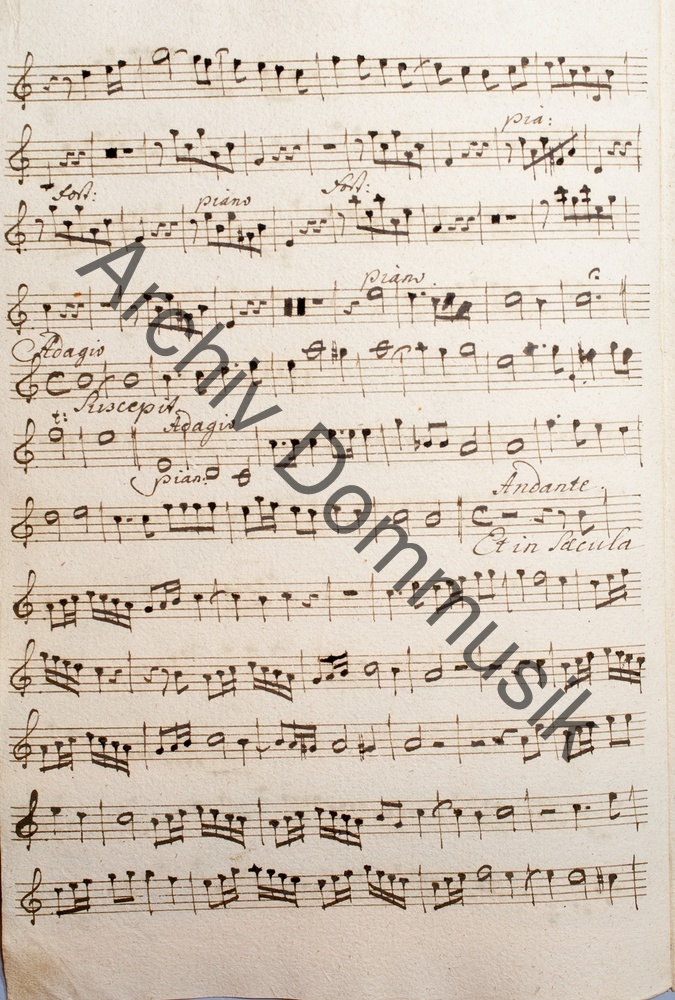 pia:
fort:
piano
fort:
piano.
Adagio
Suscepit
t:
Adagio
pian:
Andante.
Et in Sæcula
Archiv Dommusik